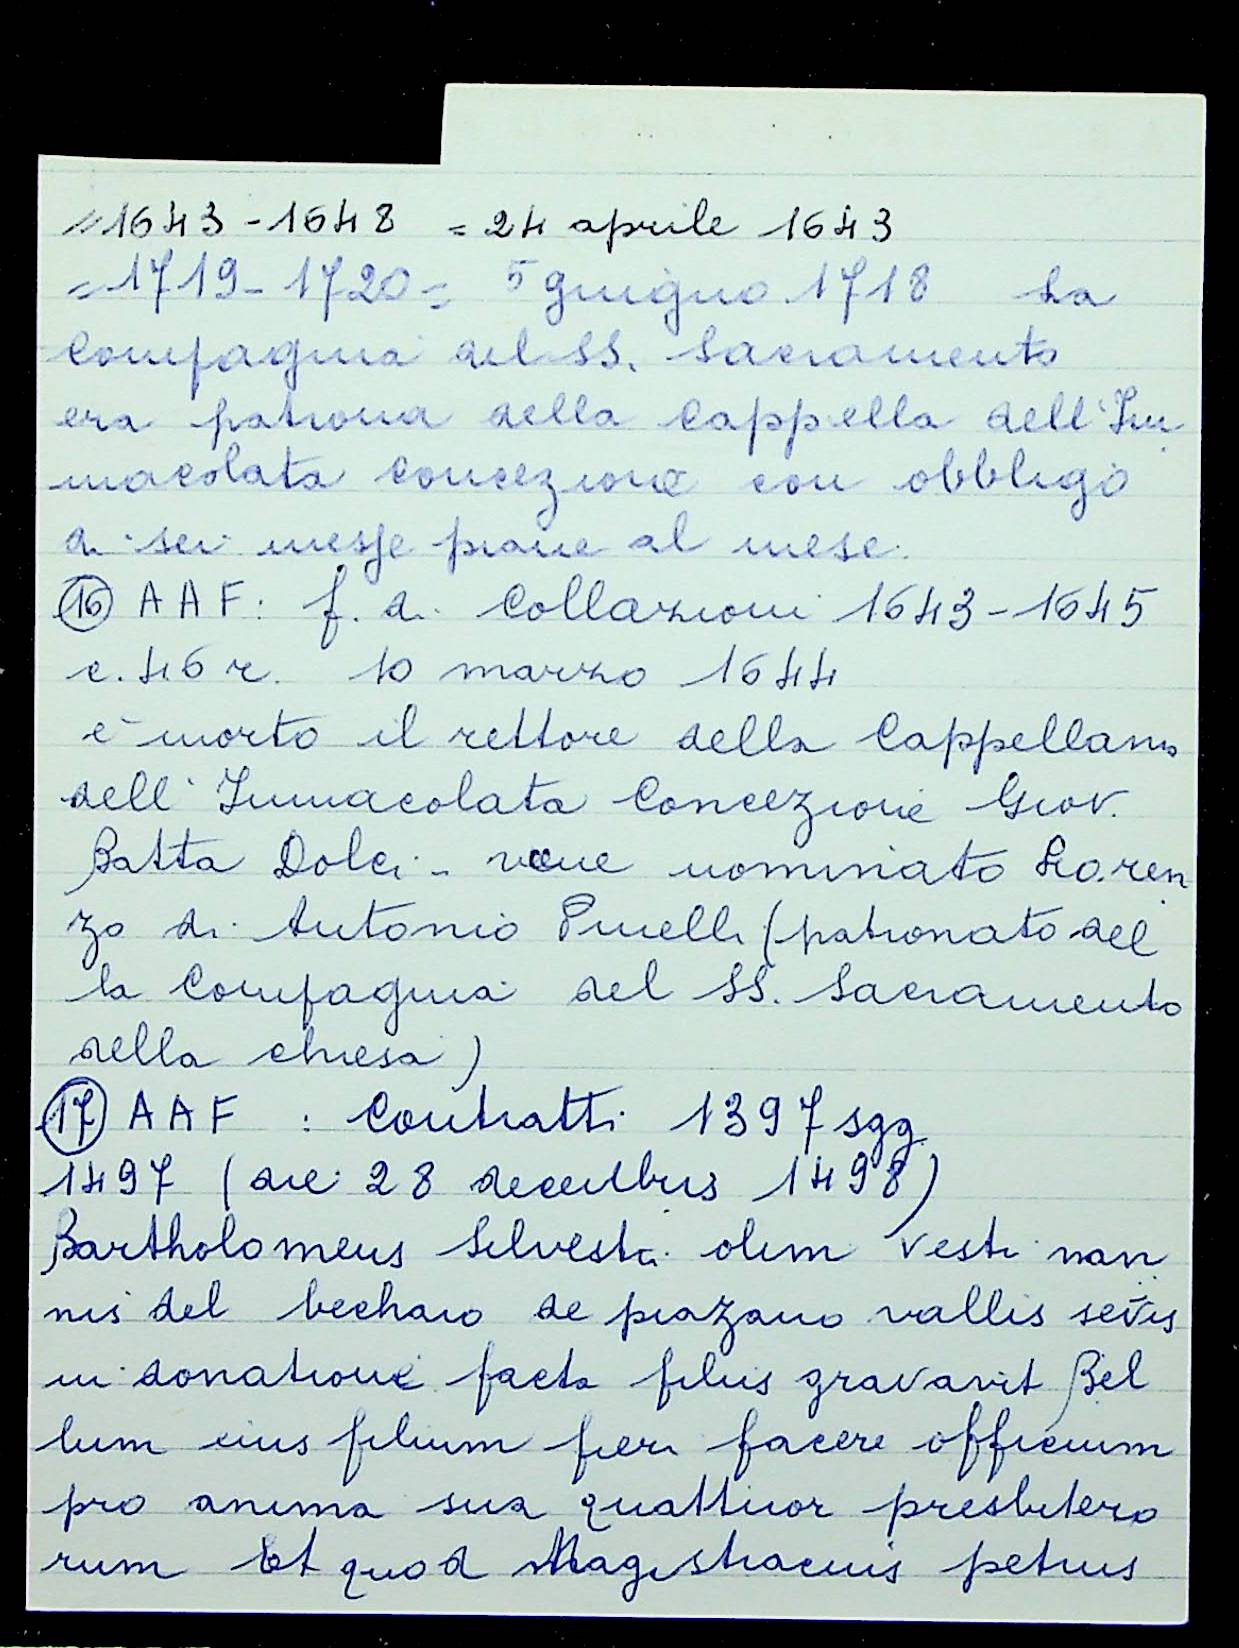 = 1643 - 1648 = 24 aprile 1643
= 1719 - 1720 = 5 giugno 1718 La
Compagnia del SS. Sacramento
era patrona della Cappella dell'Im
macolata Concezione con obbligo
di sei messe piane al mese.
(16) AAF: f. di Collazioni 1643-1645
c. 46 r. 10 marzo 1644
è morto il rettore della Cappellania
dell'Immacolata Concezione Giov.
Batta Dolci - viene nominato Loren
zo di Antonio Pinelli (patronato del
la Compagnia del SS. Sacramento
della chiesa)
(17) AAF : Contratti 1397 sgg.
1497 (die 28 decembris 1498)
Bartholomeus Silvestri olim Vestri nan
nis del bechaio de piazano vallis sevis
in donatione facta filiis gravavit Bel
lum eius filium fieri facere officium
pro anima sua quattuor presbitero
rum Et quod petrus